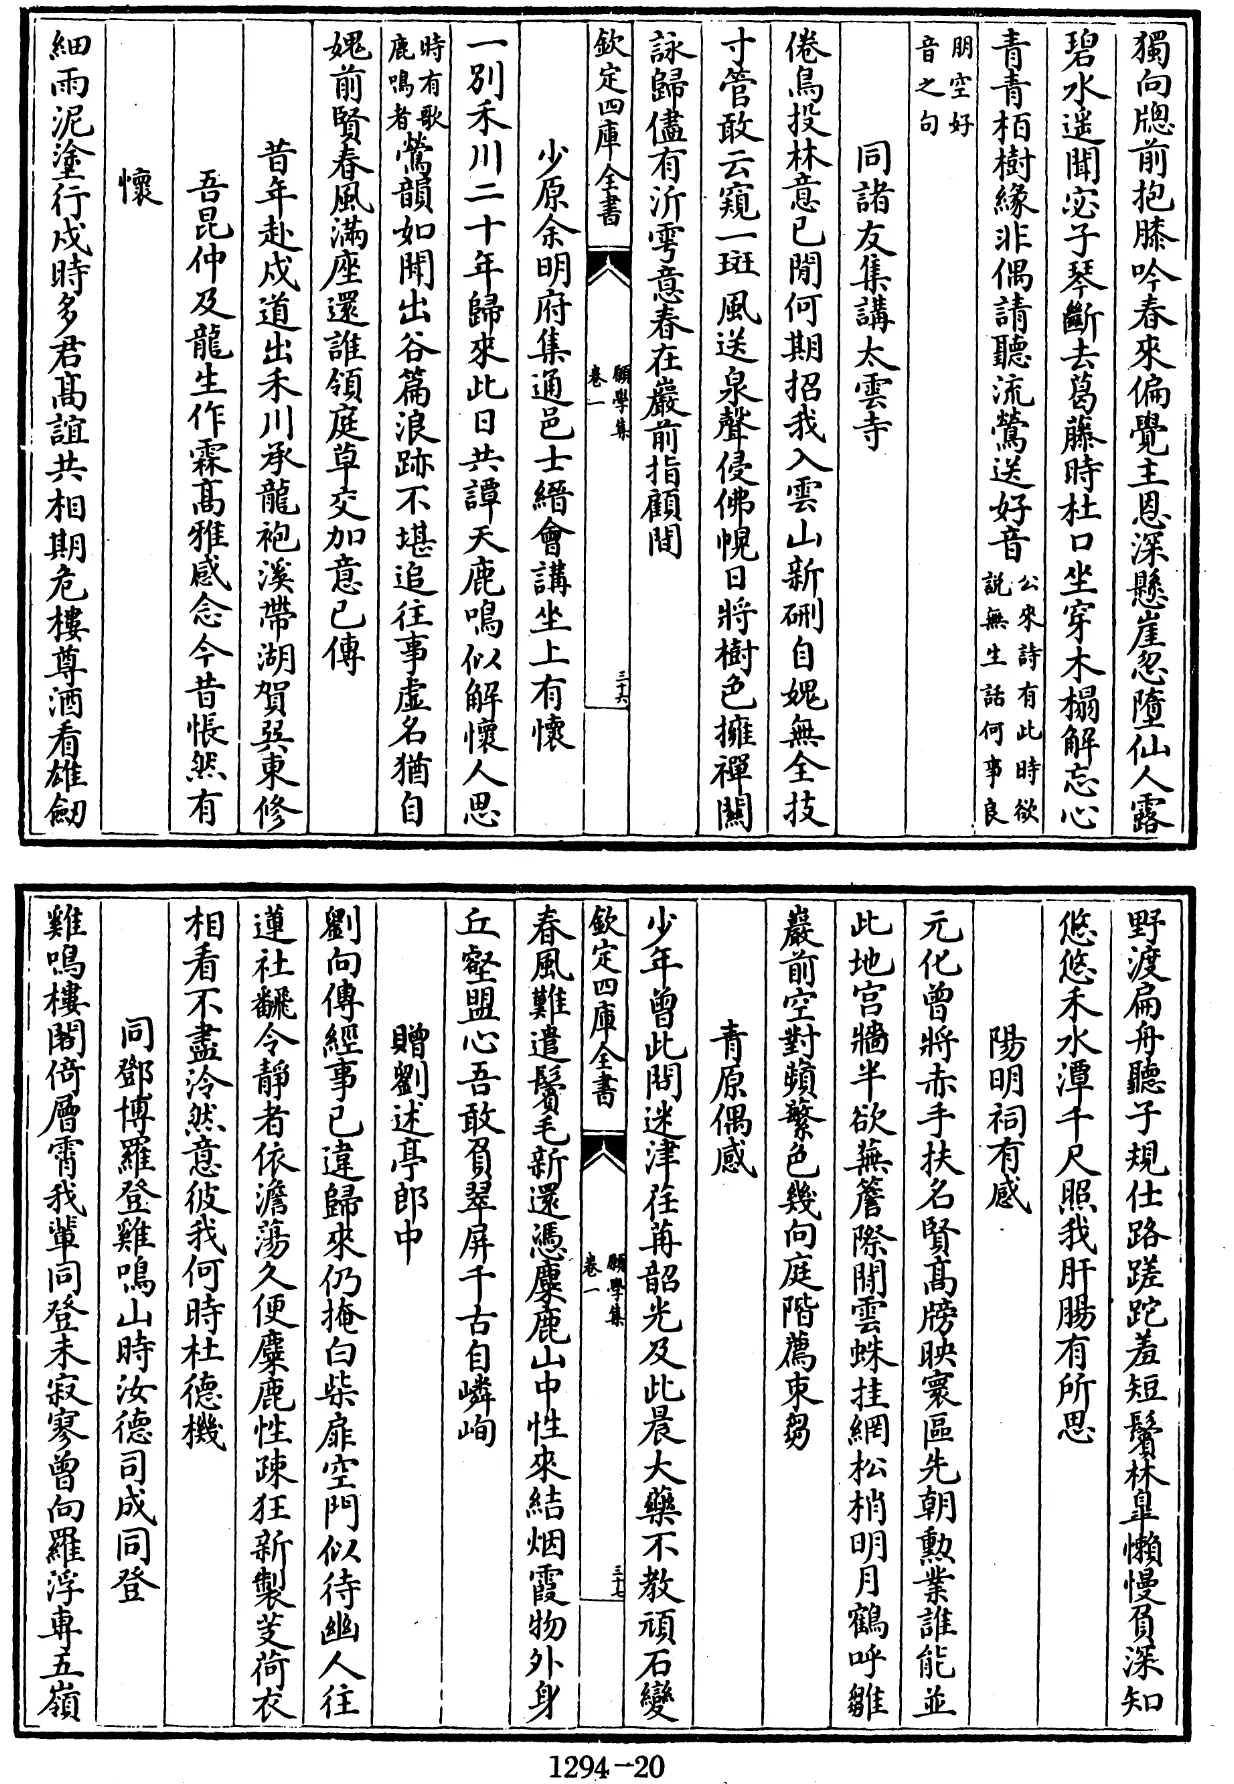 獨向牕前抱膝吟春來偏覺主恩深懸崖忽墮仙人露
碧水遥聞宓子琴斷去葛藤時杜口坐穿木榻解忘心
青青栢樹緣非偶請聽流鶯送好音公來詩有此時欲說無生話何事良
朋空好音之句
同諸友集講太雲寺
倦鳥投林意已閒何期招我入雲山新硎自媿無全技
寸管敢云窺一斑風送泉聲侵佛幌日將樹色擁禪關
詠歸儘有沂雩意春在巖前指顧間
欽定四庫全書
願學集
卷一
三十六
少原余明府集通邑士縉會講坐上有懷
一別禾川二十年歸來此日共譚天鹿鳴似解懷人思
時有歌鹿鳴者鶯韻如聞出谷篇浪跡不堪追往事虛名猶自
媿前賢春風滿座還誰領庭草交加意已傳
昔年赴戍道出禾川承龍袍溪帶湖賀巽東修
吾昆仲及龍生作霖髙雅感念今昔悵然有
懷
細雨泥塗行戍時多君髙誼共相期危樓尊酒看雄劒
野渡扁舟聽子規仕路蹉跎羞短鬢林臯懶慢負深知
悠悠禾水潭千尺照我肝腸有所思
陽明祠有感
元化曾將赤手扶名賢髙牓映寰區先朝勲業誰能並
此地宮牆半欲蕪簷際閒雲蛛挂網松梢明月鶴呼雛
巖前空對蘋蘩色幾向庭階薦束芻
青原偶感
少年曾此問迷津荏苒韶光及此晨大藥不教頑石變
春風難遣鬢毛新還憑麋鹿山中性來結烟霞物外身
丘壑盟心吾敢負翠屏千古自嶙峋
欽定四庫全書
願學集
卷一
三十七
贈劉述亭郎中
劉向傳經事已違歸來仍掩白柴扉空門似待幽人往
蓮社飜令靜者依澹蕩久便麋鹿性踈狂新製芰荷衣
相看不盡泠然意彼我何時杜德機
同鄧博羅登雞鳴山時汝德司成同登
雞鳴樓閣倚層霄我輩同登未寂寥曾向羅浮專五嶺
1294-20